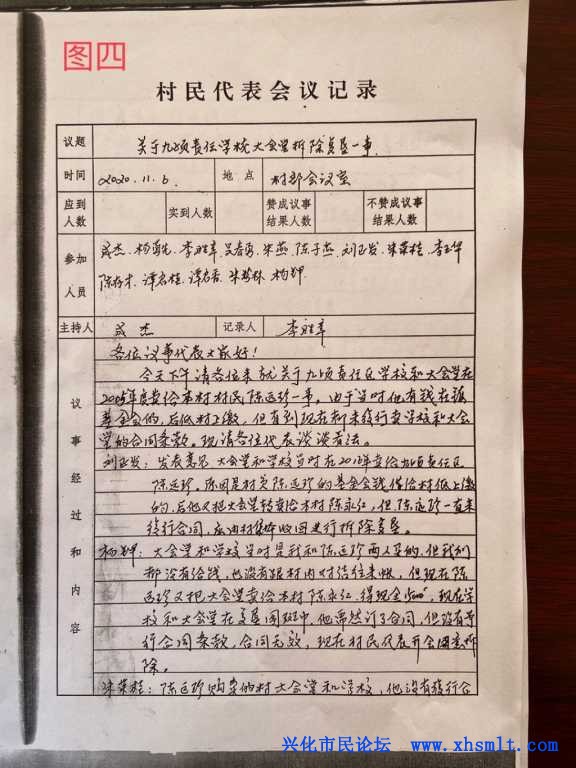 图四
村民代表会议记录
议题 关于九顷责任学校大会堂拆除复垦一事
时间 2020.11.6 地点 村部会议室
应到人数 实到人数 赞成议事结果人数 不赞成议事结果人数
参加人员 成杰 李胜章 朱燕 陈子燕 刘正发 朱荣桂
主持人 成杰 记录人 李胜章
议事经过和内容
各位议事代表大家好！
今天下午请各位来就关于九顷责任区学校和大会堂在
2005年度卖给本村村民陈远珍一事，由于当时他有钱在该
基金会的，后低村上缴，但直到现在都未履行卖学校和大会
堂的合同条款。现请各位代表谈谈看法。
刘正发：发表意见，大会堂和学校当时在 卖给九顷责任区
陈远珍，原因是村欠陈远珍的基金会钱 给村低上缴
的，后他又把大会堂转卖给本村陈永红，但陈远珍一直未
履行合同，应由村集体收回进行拆除复垦。
大会堂和学校当时是我和陈远珍两人买的，但我们
都没有给钱，也没有跟村内对结往来帐，但现在陈
远珍又把大会堂卖给本村陈永红，得现金 现在学
校和大会堂在复垦图斑中，他虽然订了合同，但没有履
行合同条款，合同无效，现在村民代表开会同意拆
除。
朱荣桂：陈远珍购买的村大会堂和学校，他没有履行合
兴化市民论坛 www.xhsmlt.com